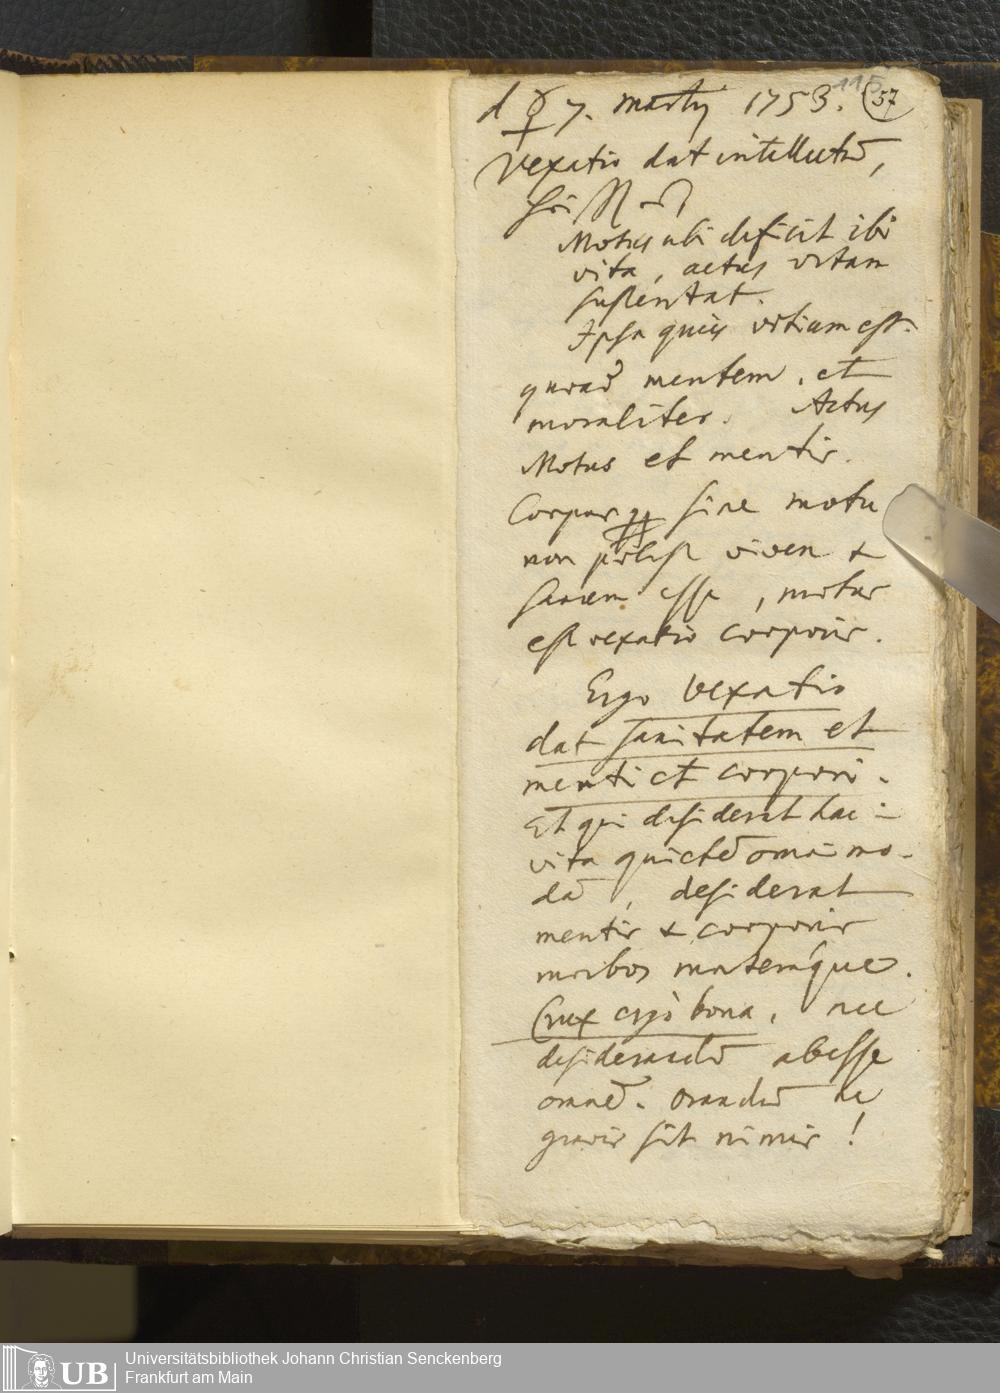 115
d ☿ 7. martij 1753. (57)
Vexatio dat intellectū,
Motus ubi deficit ibi
vita, actus vitam
sustentat.
Ipsa quies vitium est.
quoad mentem. et
moraliter. Actus
Motus est mentis.
Corpus sine motu
non potest viven &
sanum esse, motus
est vexatio corporis.
Ergo Vexatio
dat sanitatem et
menti et corpori.
Et qui desiderat hac i
vita quietē omni mo-
dā, desiderat
mentis & corporis
morbos mortemque.
Crux ergò bona, nec
desiderandū abesse
omnē. orandū ne
gravis sit nimis!
Universitätsbibliothek Johann Christian Senckenberg
Frankfurt am Main
UB